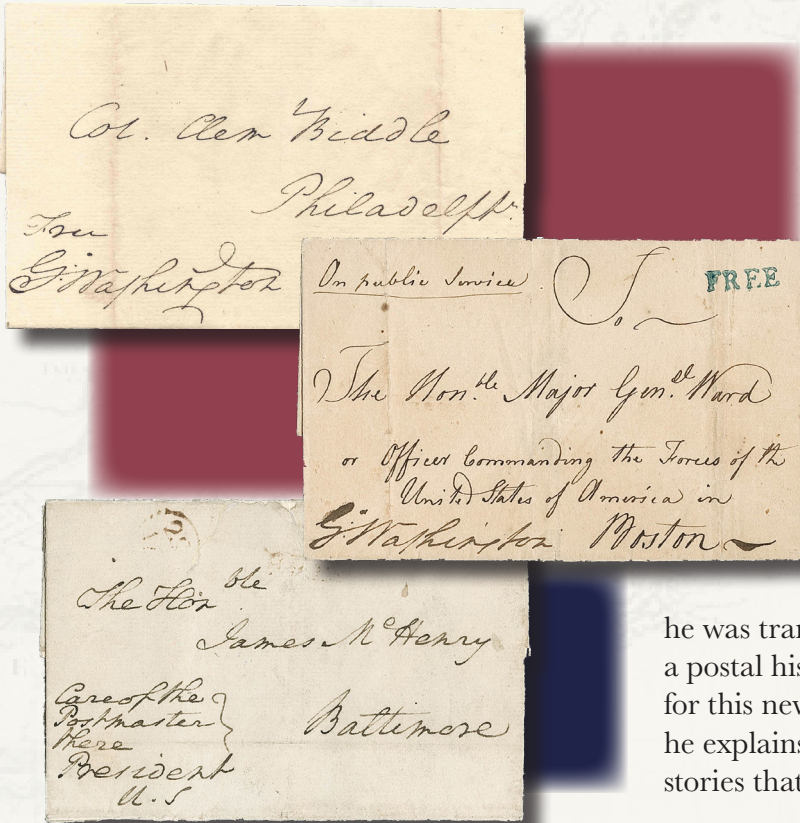 Col. Clem Biddle
Philadelpha
Free
G:Washington
On public Service
To
FREE
The Hon.ble Major Gen.el Ward
or Officer Commanding the Forces of th
United States of America in
G:Washington Boston
The Hon ble
James McHenry
Care of the
Postmaster
there
Baltimore
President
U.S
he was tran
a postal his
for this new
he explains
stories that